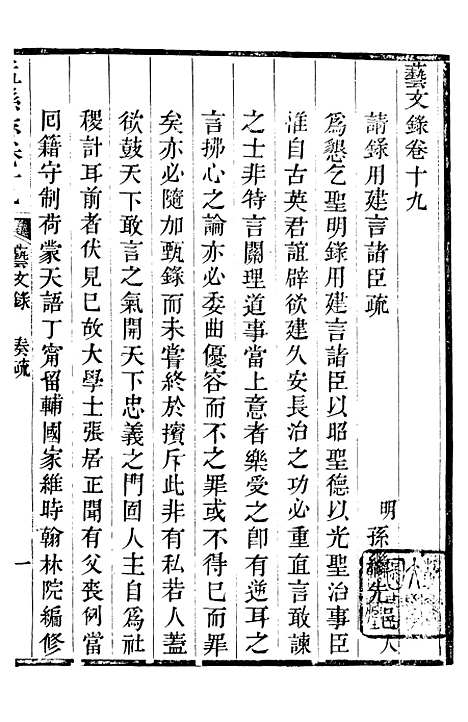 藝文錄卷十九
請錄用建言諸臣疏
明孫繼先邑人
爲懇乞聖明錄用建言諸臣以昭聖德以光聖治事臣
淮自古英君誼辟欲建久安長治之功必重直言敢諫
之士非特言關理道事當上意者樂受之卽有逆耳之
言拂心之論亦必委曲優容而不之罪或不得已而罪
矣亦必隨加甄錄而未嘗終於擯斥此非有私若人蓋
欲鼓天下敢言之氣開天下忠義之門固人主自爲社
稷計耳前者伏見已故大學士張居正聞有父喪例當
囘籍守制荷蒙天語丁甯留輔國家維時翰林院編修
藝文錄 奏疏 一